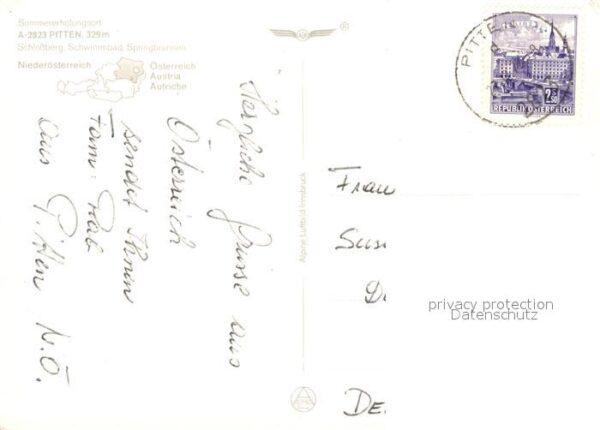 Sommererholungsort
A-2823 PITTEN, 329m
Schloßberg, Schwimmbad, Springbrunnen
Niederösterreich
Österreich
Austria
Autriche
Herzliche Grüsse aus
Österreich
sendet Ihnen
Fam.
aus Pitten N.Ö.
Alpine Luftbild Innsbruck
PITTEN
2.50
REPUBLIK ÖSTERREICH
Frau
Sus
D
privacy protection
Datenschutz
DE